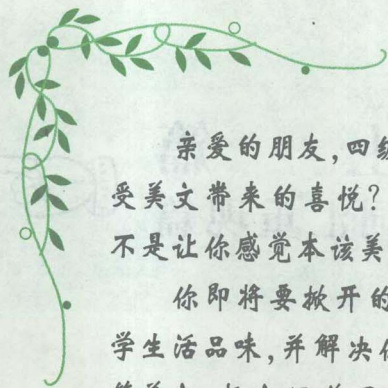 亲爱的朋友,四级
受美文带来的喜悦?
不是让你感觉本该美
你即将要掀开的
学生活品味,并解决你